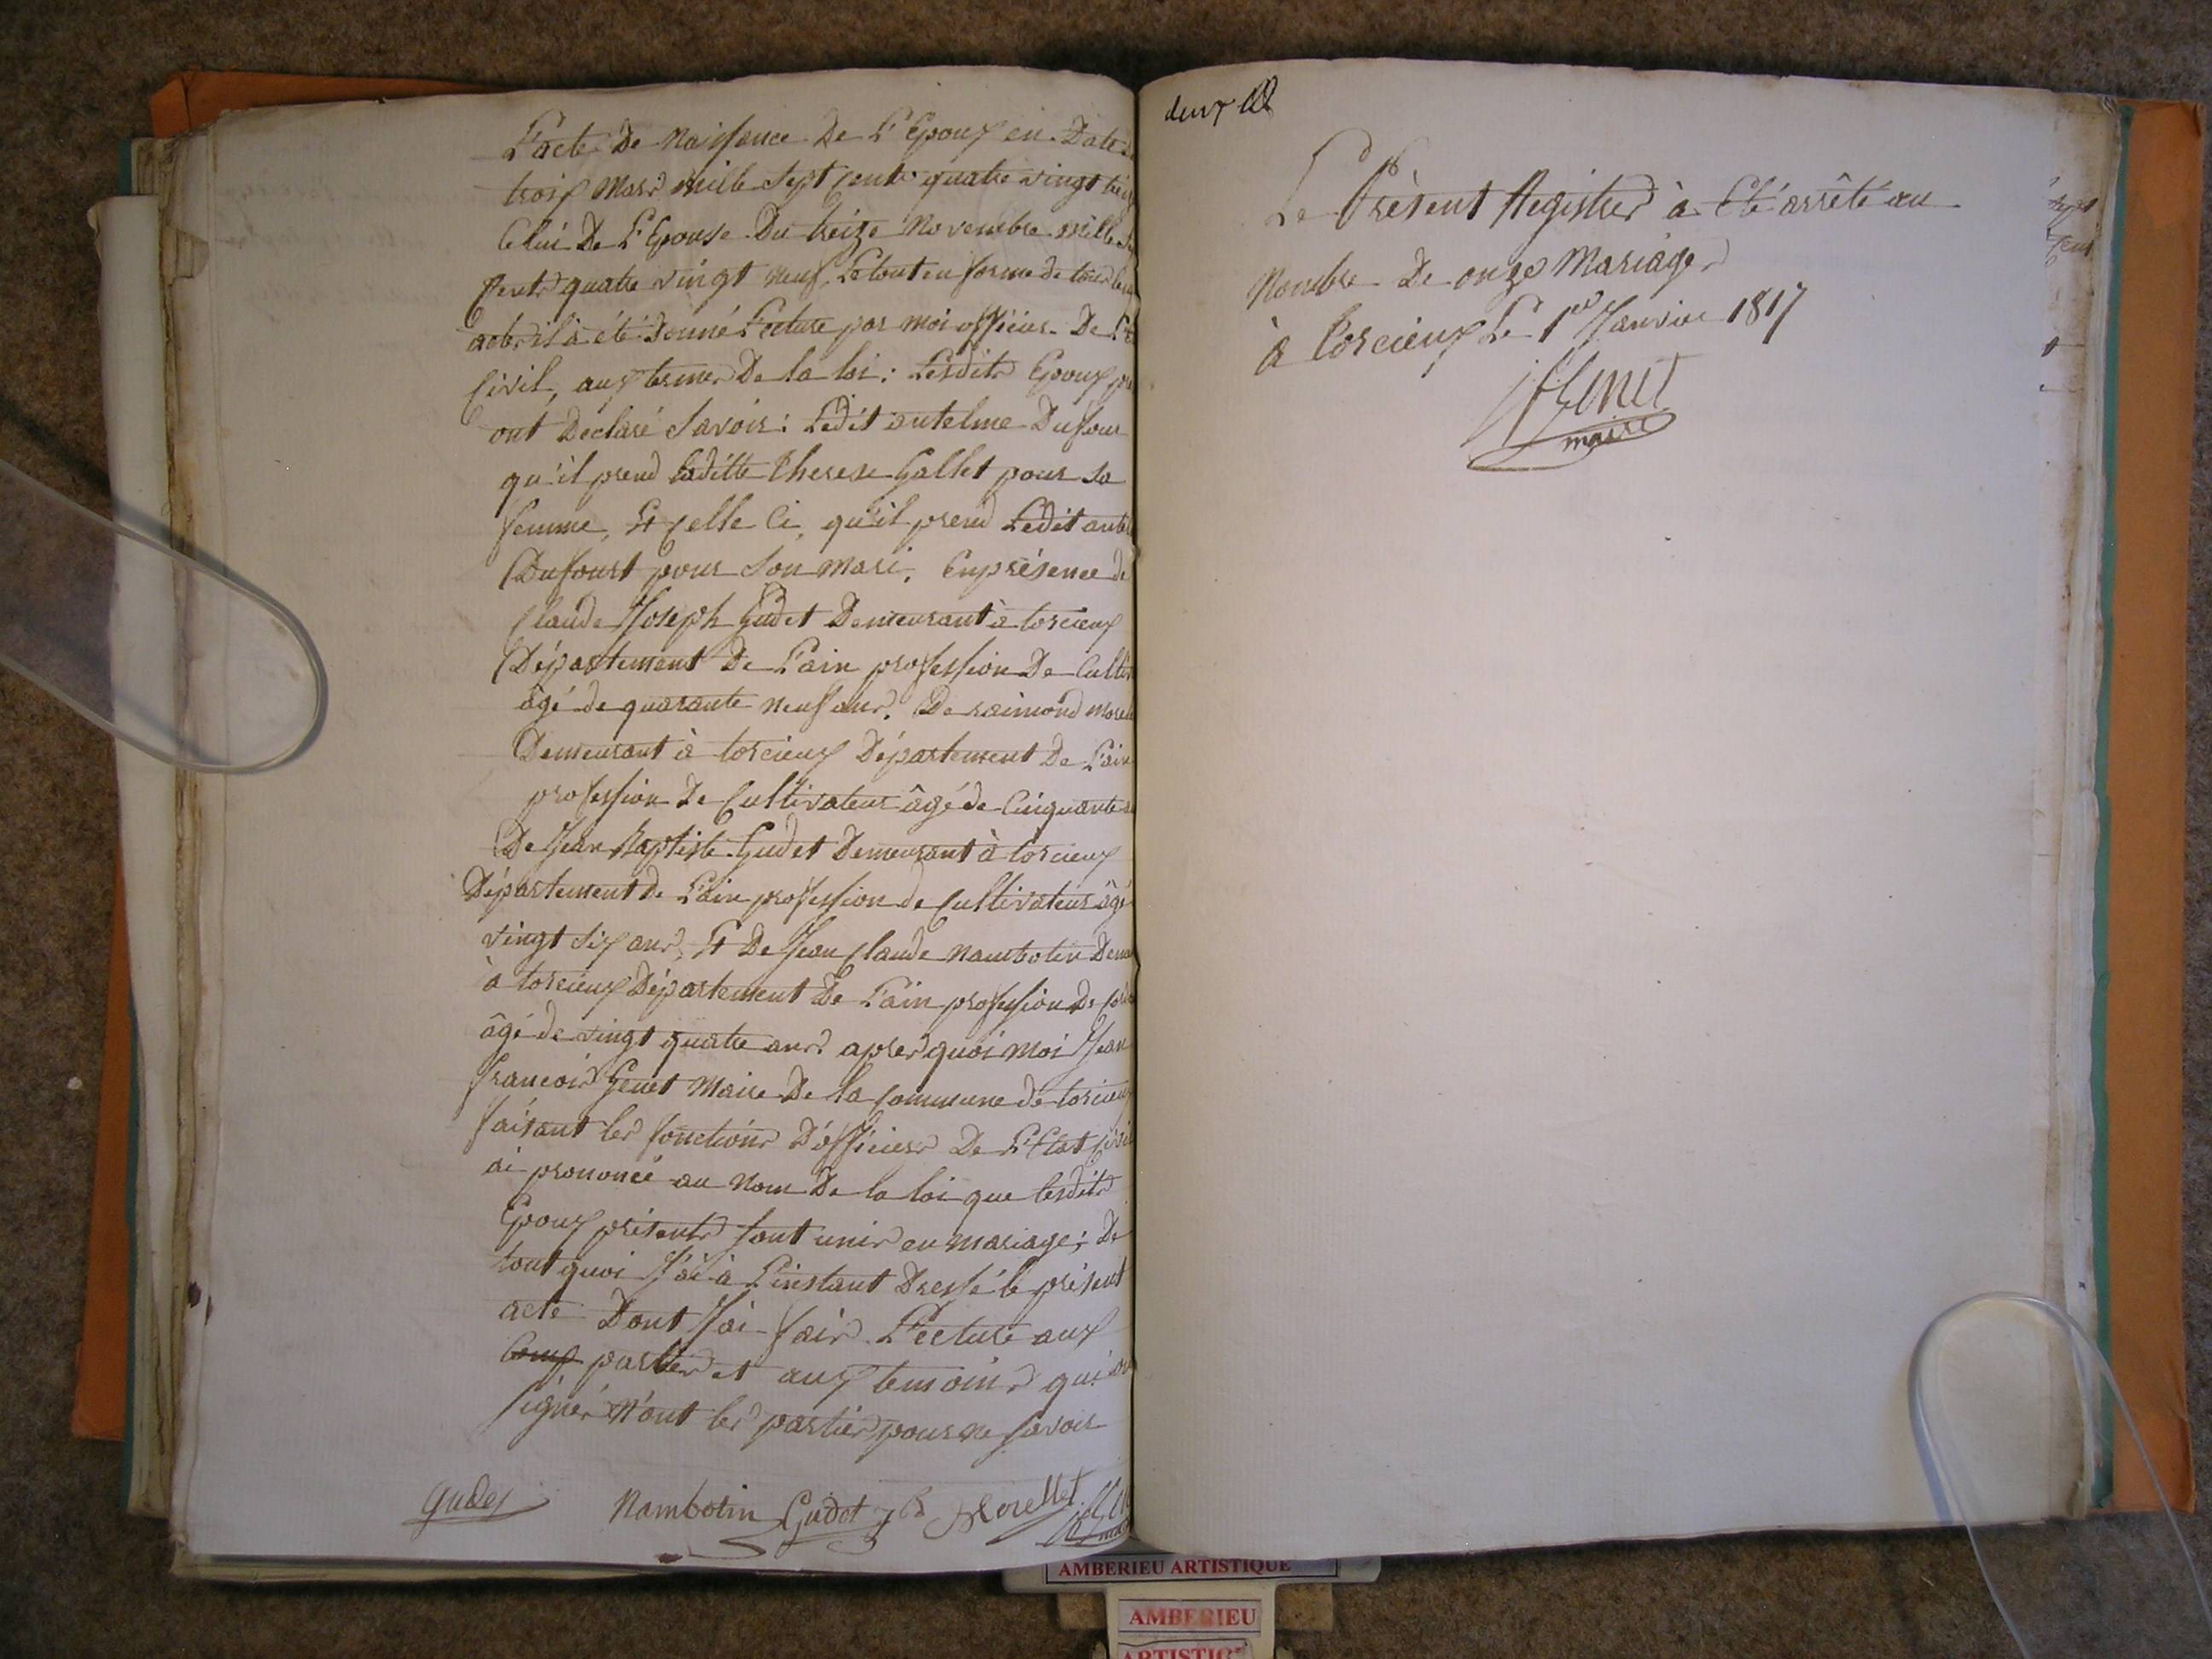 L'acte De Naissance De L'Epoux en Date
trois Mars mille Sept Cents quatre vingt
Celui De L'Epouse Du treize Novembre mille
Cents quatre vingt neuf, Le tout en forme de tous
actes il à été donné Lecture par moi officier De
Civil, aux termes De la loi : Lesdits Epoux
ont Déclaré Savoir : Ledit antelme Dufour
qu'il prend Laditte Therese Gallet pour Sa
femme, Et Celle Ci, qu'il prend Ledit
Dufourt pour Son Mari, En présence de
Claude Joseph Gudet Demeurant à torcieux
Département De L'ain profession De
âgé de quarante neuf ans, De raimond
Demeurant à torcieux Département De L'ain
profession De Cultivateur âgé de Cinquante
De Jean Baptiste Gudet Demeurant à torcieux
Département de L'ain profession de Cultivateur âgé
vingt Six ans, Et De Jean Claude Nambotin
à torcieux Département De L'ain profession De
âgé de vingt quatre ans apres quoi Moi Jean
francois Genet Maire De la Commune de torcieux
faisant les fonctions D'officier De L'Etat Civil
ai prononcé au Nom De la loi que lesdits
Epoux présents Sont unis en Mariage ; De
tout quoi J'ai à L'instant Dressé le présent
acte Dont J'ai fais Lecture aux
parties et aux temoins qui
Signés N'ont les parties pour ne Savoir
Gudet Nambotin Gudet J B Morellet
deux
Le Présent Registre à Eté arrêté au
Nombre De onze Mariages
à torcieux Le 1er Janvier 1817
Genet
maire
AMBERIEU ARTISTIQUE
AMBERIEU